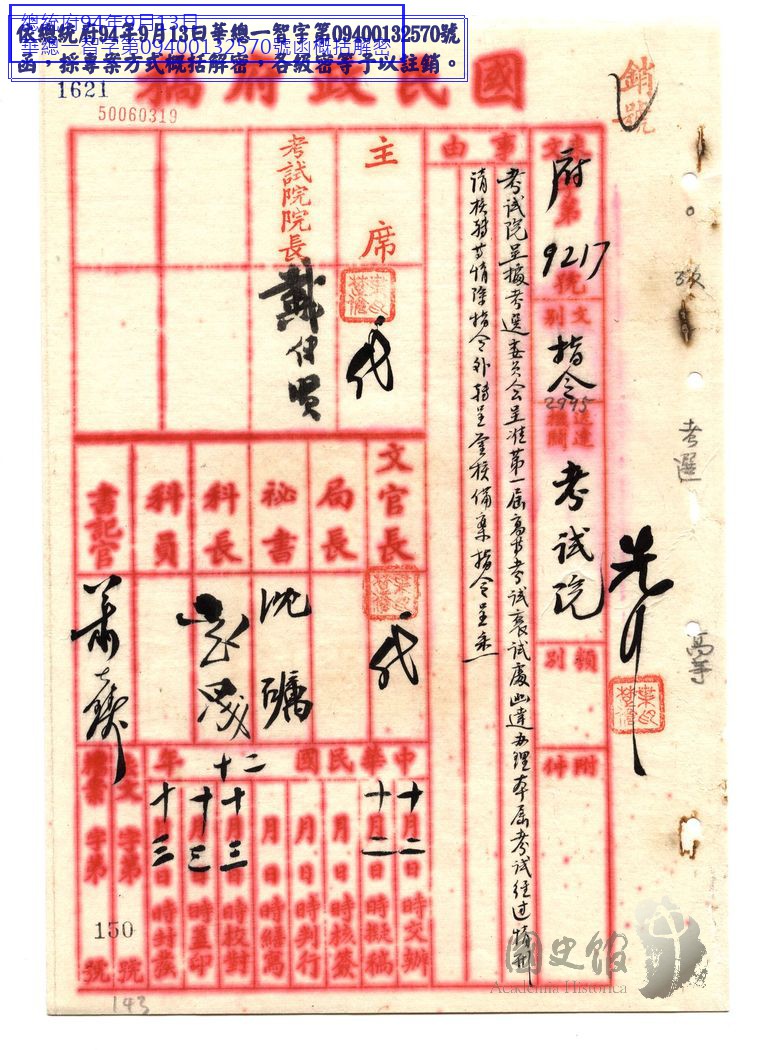 總統府94年9月13日
華總一智字第09400132570號函概括解密
依總統府94年9月13日華總一智字第09400132570號
函，採專案方式概括解密，各級密等予以註銷。
1621
50060319
國民政府稿
銷號
考選
高等
來文
府第9217號
文別
指令
2945
送達機關
考試院
類別
附件
事由
考試院呈據考選委員會呈准第一屆高等考試襄試處函達办理本屆考試经过情形
请核轉等情除指令外轉呈鉴核備案指令呈悉
主席
代
考試院院長
戴传贤
文官長
代
局長
祕書
沈礪
科長
科員
書記官
中華民國二十年
十月二日時交辦
十月二日時擬稿
月日時核簽
月日時判行
月日時繕寫
十月三日時校對
十月三日時蓋印
十月三日時封發
發文字第150號
檔案字第號
143
國史館
Academia Historica